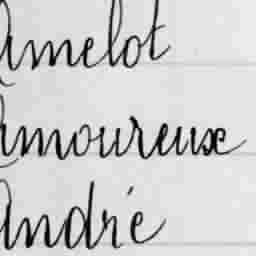 Amelot
Amoureux
André